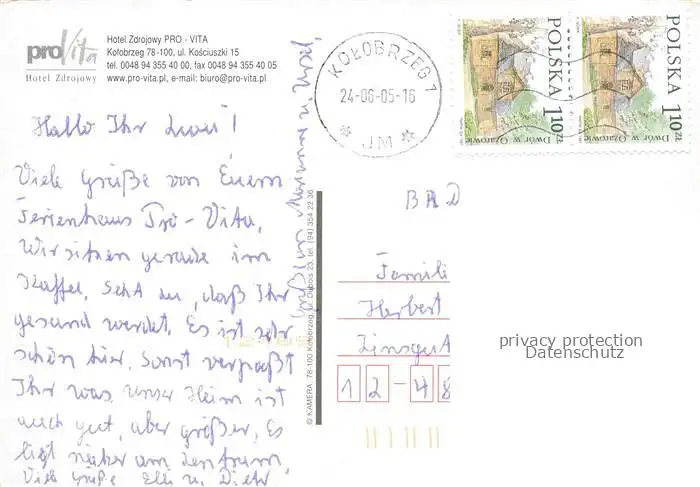 proVita
Hotel Zdrojowy
Hotel Zdrojowy PRO - VITA
Kołobrzeg 78-100, ul. Kościuszki 15
tel. 0048 94 355 40 00, fax 0048 94 355 40 05
www.pro-vita.pl, e-mail: biuro@pro-vita.pl
KOŁOBRZEG 1
24-06-05-16
* JM *
POLSKA 1,10 ZŁ
Dwór w Ożarowie
POLSKA 1,10 ZŁ
Dwór w Ożarowie
Hallo Ihr zwei!
Viele Grüße von Eurem
Ferienhaus Pro-Vita,
Wir sitzen gerade im
Kaffee. Seht zu, daß Ihr
gesund werdet. Es ist sehr
schön hier, sonst verpaßt
Ihr was, unser Heim ist
auch gut, aber größer, Es
liegt näher am Zentrum,
Viele Grüße Elli u. Dieter
© KAMERA 78-100 Kołobrzeg, ul. Dubois 23, tel. (94) 354 22 36
BRD
Famili
Herbert
12-48
privacy protection
Datenschutz